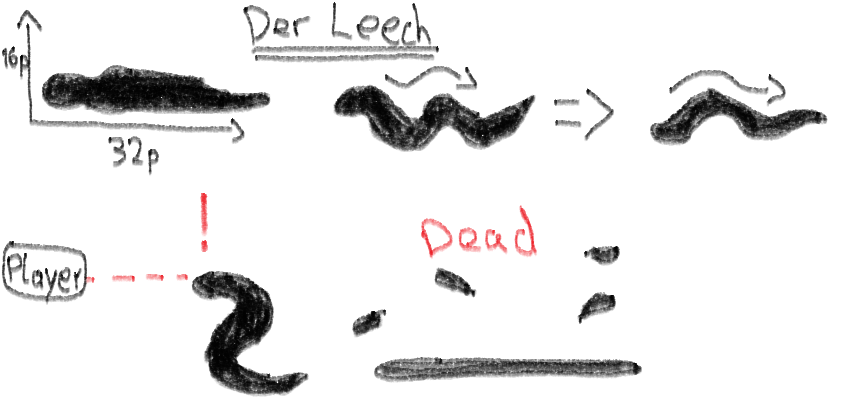 Der Leech
16p
32p
!
Player
Dead